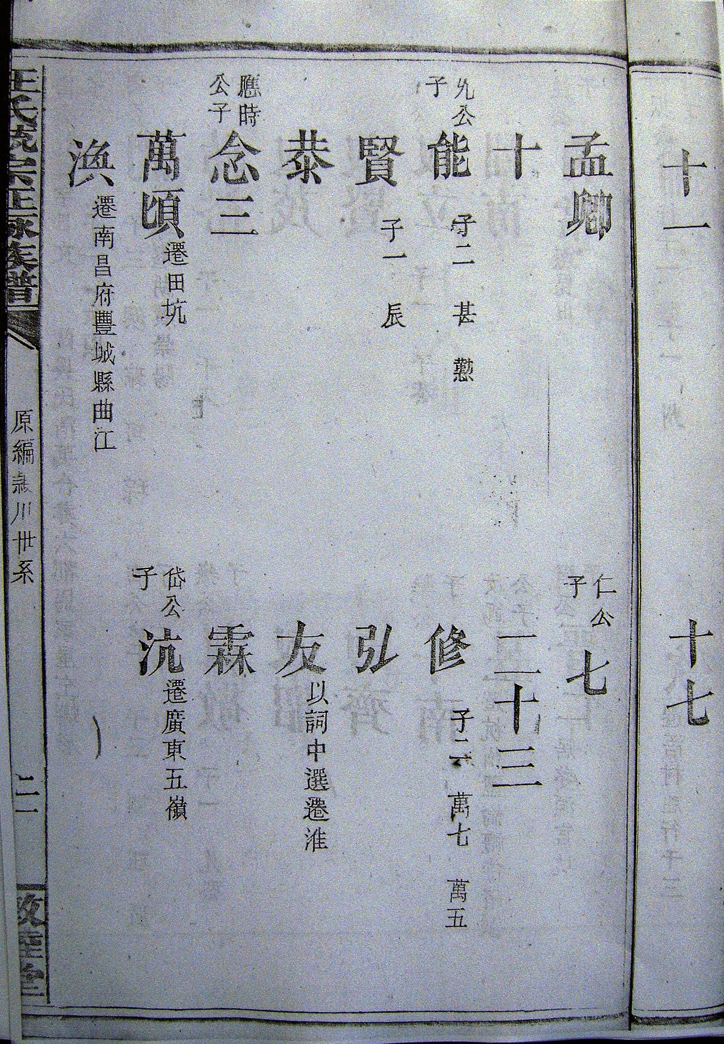 十一
十七
孟卿
仁公子 七
十
二十三
允公子 能 子二 甚 懃
修 子二 萬七 萬五
賢 子一 辰
弘
恭
友 以詞中選遷淮
應時公子 念三
霖
萬頃 遷田坑
岱公子 沆 遷廣東五嶺
渙 遷南昌府豐城縣曲江
汪氏統宗正脉族譜
原編 川世系
二一
敦 堂